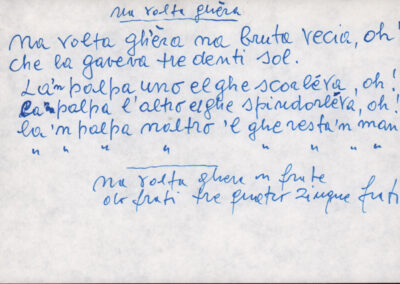 na volta ghèra
na volta ghèra na bruta vecia, oh!
che la gaveva tre denti sol.
La'n palpa uno el ghe scorléva, oh!
la'n palpa l'altro el ghe spindorléva, oh!
la 'n palpa naltro 'l ghe resta 'n man
" " " " " " " "
na volta ghera n frate
do frati tre quatro zinque frati